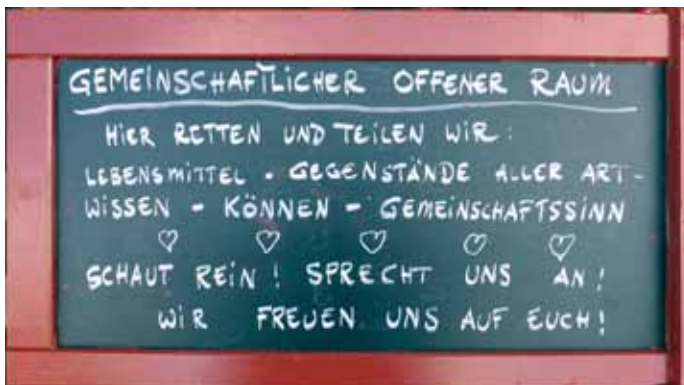 GEMEINSCHAFTLICHER OFFENER RAUM
HIER RETTEN UND TEILEN WIR:
LEBENSMITTEL - GEGENSTÄNDE ALLER ART -
WISSEN - KÖNNEN - GEMEINSCHAFTSSINN
♡ ♡ ♡ ♡ ♡
SCHAUT REIN! SPRECHT UNS AN!
WIR FREUEN UNS AUF EUCH!